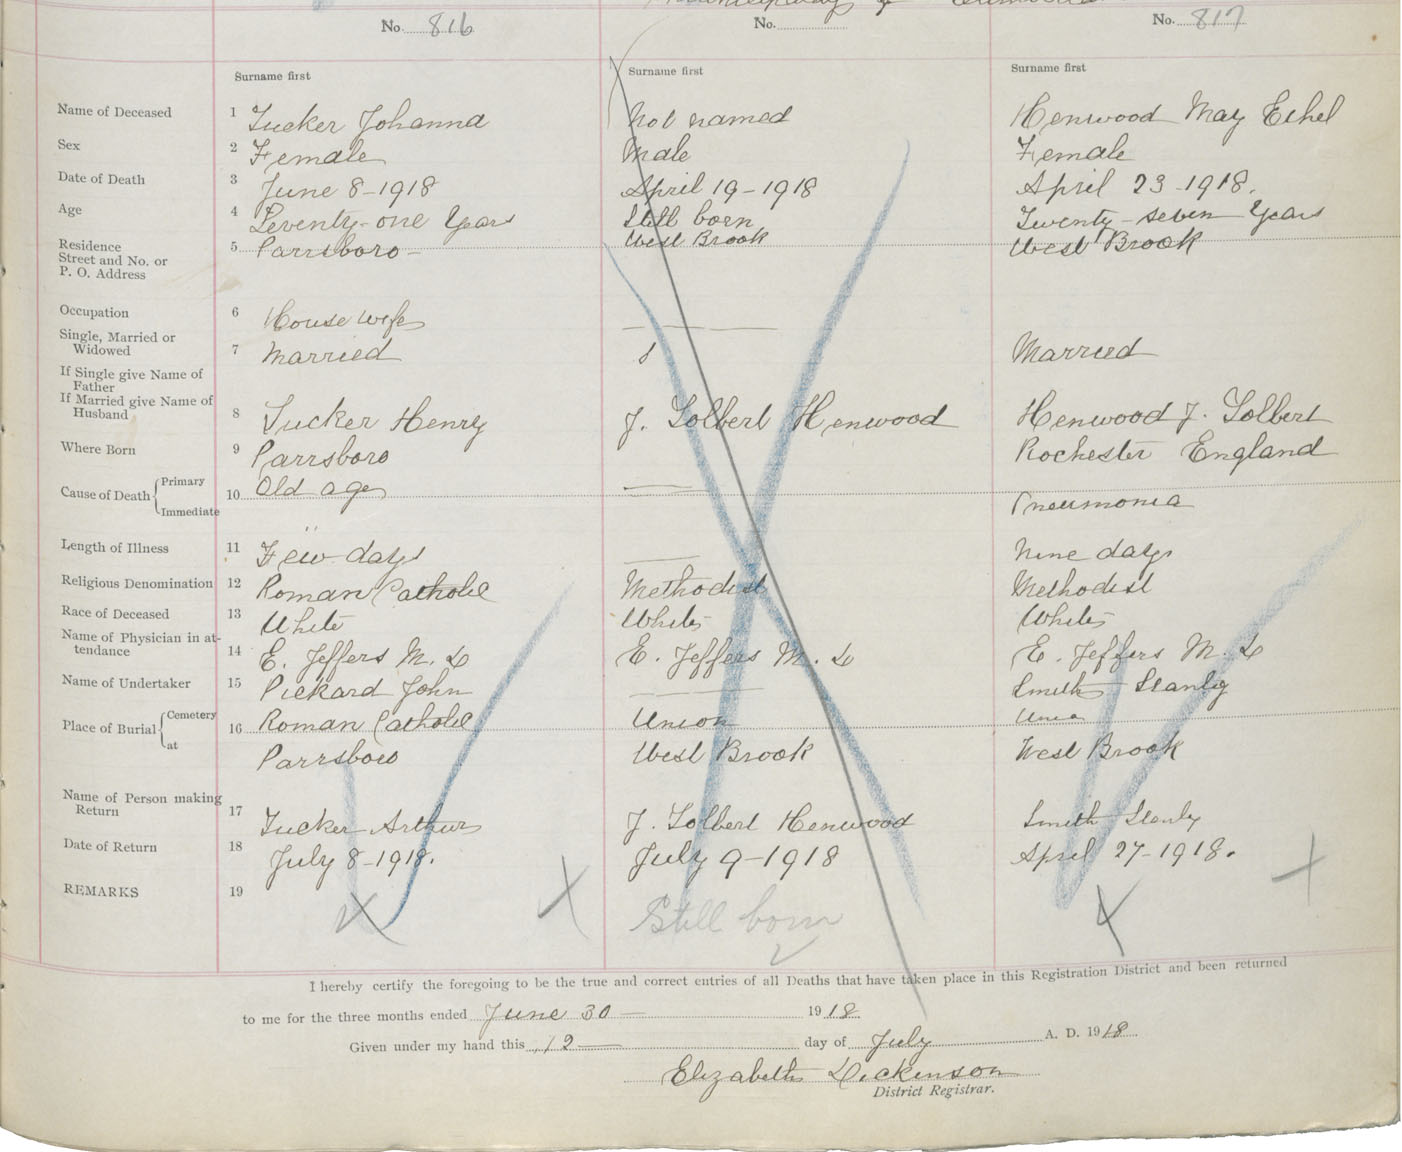 No. 816 No. No. 817
Surname first Surname first Surname first
Name of Deceased 1 Tucker Johanna Not named Henwood May Ethel
Sex 2 Female Male Female
Date of Death 3 June 8-1918 April 19-1918 April 23-1918.
Age 4 Seventy-one Years Still born Twenty-seven Years
Residence
Street and No. or
P. O. Address 5 Parrsboro- West Brook West Brook
Occupation 6 House wife —
Single, Married or
Widowed 7 Married S Married
If Single give Name of
Father
If Married give Name of
Husband 8 Tucker Henry J. Tolbert Henwood Henwood J. Tolbert
Where Born 9 Parrsboro Rochester England
Cause of Death Primary 10 Old age — Pneumonia
Immediate "
Length of Illness 11 Few days — Nine days
Religious Denomination 12 Roman Catholic Methodist Methodist
Race of Deceased 13 White White White
Name of Physician in at-
tendance 14 E. Jeffers M. D E. Jeffers M. D E. Jeffers M. D
Name of Undertaker 15 Pickard John — Smith Stanly
Place of Burial Cemetery 16 Roman Catholic Union Union
at Parrsboro West Brook West Brook
Name of Person making
Return 17 Tucker Arthur J. Tolbert Henwood Smith Stanly
Date of Return 18 July 8-1918. July 9-1918 April 27-1918.
REMARKS 19 Still born
I hereby certify the foregoing to be the true and correct entries of all Deaths that have taken place in this Registration District and been returned
to me for the three months ended June 30 — 1918
Given under my hand this 12 — day of July A. D. 1918
Elizabeth Dickinson
District Registrar.